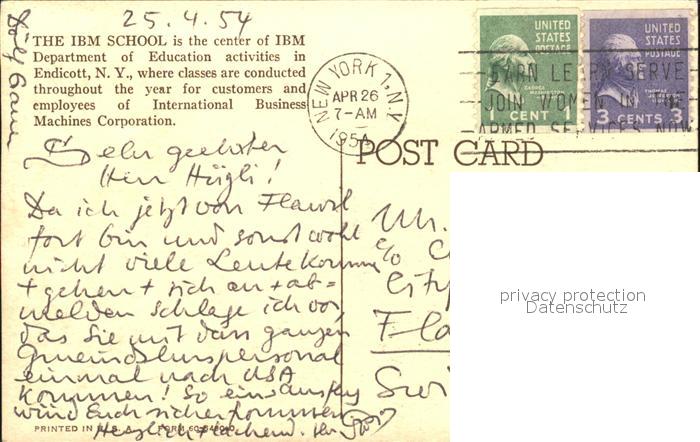 25.4.54
THE IBM SCHOOL is the center of IBM
Department of Education activities in
Endicott, N. Y., where classes are conducted
throughout the year for customers and
employees of International Business
Machines Corporation.
Sehr geehrter
Herr Hügli!
Da ich jetzt von Flawil
fort bin und sonst wohl
nicht viele Leute kommen
+ gehen + sich an + ab=
melden schlage ich vor,
das Sie mit dem ganzen
Gmeindhuspersonal
einmal nach USA
kommen! So ein
wird Euch sicher kommen
Herzlich lachend. Ihr
PRINTED IN U. S. A.
FORM 60-
NEW YORK 1, N.Y.
APR 26
7-AM
1954
UNITED
STATES
POSTAGE
GEORGE
WASHINGTON
1 CENT 1
UNITED
STATES
POSTAGE
THOMAS
JEFFERSON
3 CENTS 3
EARN LEARN SERVE
JOIN WOMEN IN THE
ARMED SERVICES NOW
POST CARD
Mr.
c/o
City
Fla
Swi
privacy protection
Datenschutz